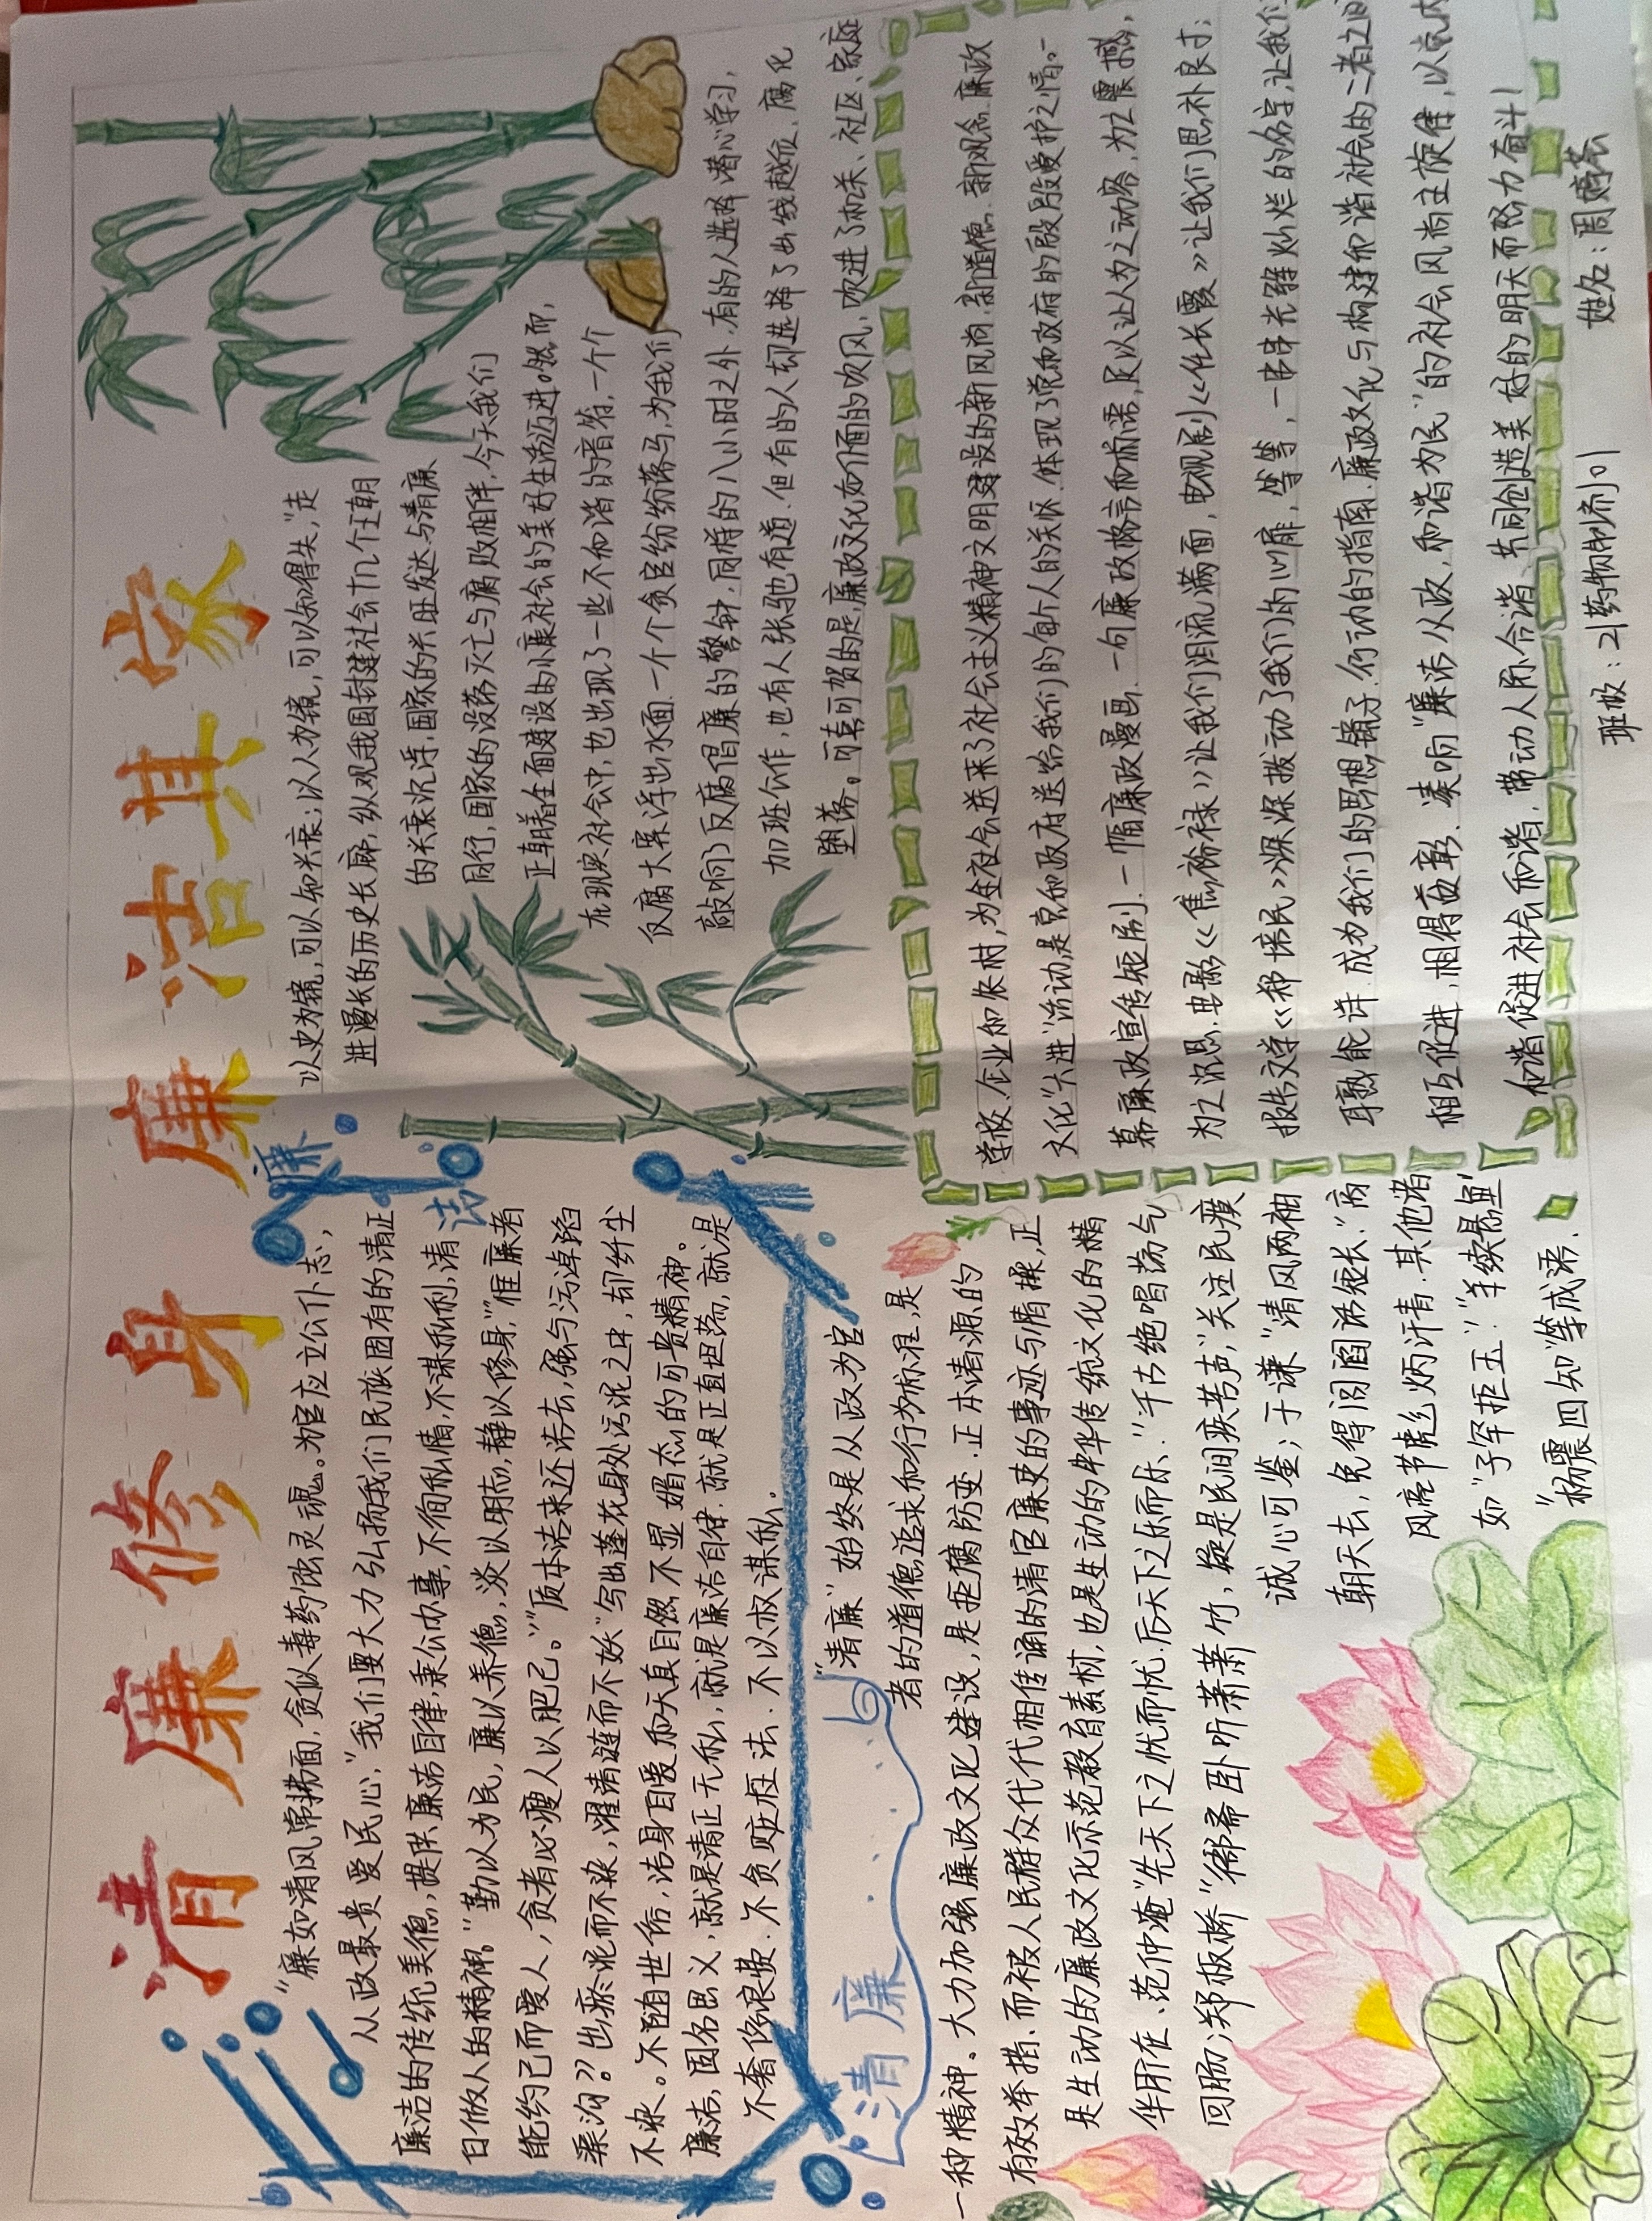 清廉修身 廉洁其家
"廉如清风常拂面,贪似毒药蚀灵魂。为官应立公仆志,
从政最贵爱民心,"我们要大力弘扬我们民族固有的清正
廉洁的传统美德,提升廉洁自律,秉公办事,不徇私情,不谋私利,清
白做人的精神。"勤以为民,廉以养德,淡以明志,静以修身,""惟廉者
能约己而爱人,贪者必瘦人以肥己。""质本洁来还洁去,强与污淖陷
渠沟??出淤泥而不染,濯清涟而不妖"写出莲花身处污泥之中,却纤尘
不染。不随世俗,洁身自爱和天真自然不显媚态的可贵精神。
廉洁,固名思义,就是清正无私,就是廉洁自律.就是正直坦荡,就是
不奢侈浪费.不贪赃枉法.不以权谋私.
廉
洁
清廉
"清廉"始终是从政为官
者的道德追求和行为标准,是
一种精神。大力加强廉政文化建设,是拒腐防变.正本清源的
有效举措.而被人民群众代代相传诵的清官廉吏的事迹与情操,正
是生动的廉政文化示范教育素材,也是生动的中华传统文化的精
华所在.范仲淹"先天下之忧而忧,后天下之乐而乐."千古绝唱荡气
回肠;郑板桥"衙斋卧听萧萧竹,疑是民间疾苦声,"关注民瘼
诚心可鉴;于谦"清风两袖
朝天去,免得闾阎话短长."高
风亮节彪炳汗青.其他诸
如"子罕拒玉""羊续悬鱼"
"杨震四知"等成语.
以史为镜,可以知兴衰;以人为镜,可以知得失,"走
进漫长的历史长廊,纵观我国封建社会十几个王朝
的兴衰沉浮,国家的兴旺发达与清廉
同行,国家的没落灭亡与腐败相伴,今天我们
正朝着全面建设的小康社会的美好生活迈进。然而,
在现实社会中,也出现了一些不和谐的音符,一个个
反腐大案浮出水面.一个个贪官纷纷落马,为我们
敲响了反腐倡廉的警钟.同样的八小时之外,有的人选择潜心学习,
加班工作,也有人张弛有道.但有的人却选择了出线越位,腐化
堕落。可喜可贺的是,廉政文化如扑面的吹风,吹进了机关、社区、家庭
学校.企业和农村,为全社会送来了社会主义精神文明建设的新风尚,新道德.新观念.廉政
文化"六进"活动,是党和政府送给我们的每个人的关怀.体现了党和政府的殷殷爱护之情。
幕廉政宣传短剧.一幅廉政漫画.一句廉政格言和桥需,足以让人为之动容,为之震撼,
为之沉思.电影《焦裕禄》让我们泪流满面,电视剧《任长霞》让我们思补良才;
报告文学《郑培民》深深拨动了我们的心扉,等等,一串串光辉灿烂的名字,让我们
耳熟能详.成为我们的思想镜子.行动的指南.廉政文化与构建和谐社会的二者之间
相互促进,相得益彰.凑响"廉洁从政,和谐为民"的社会风尚主旋律,以党内
和谐促进社会和谐,带动人际合谐,共同创造美好的明天而努力奋斗!
班级:21药物制剂01 姓名:周婷荟